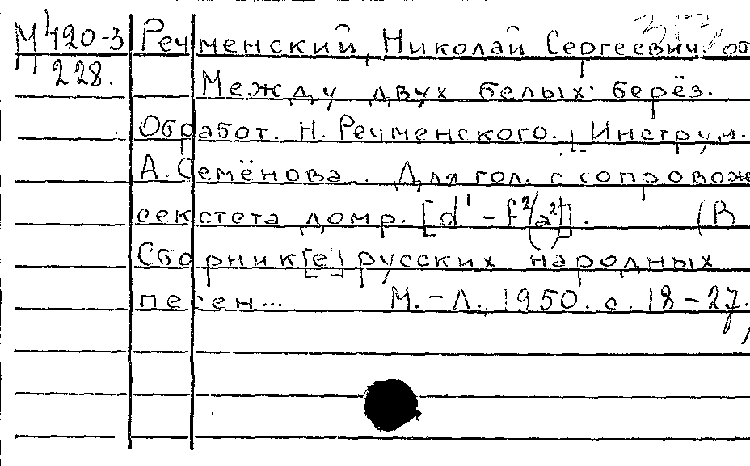 М 420-3 Речменский, Николай Сергеевич. об
228. Между двух белых берёз.
Обработ. Н. Речменского. [Инструм.
А. Семёнова. Для гол. с сопровож
секстета домр. [d¹ – f²(a²)]. (В
Сборник[е] русских народных
песен... М.-Л., 1950. с. 18-27.